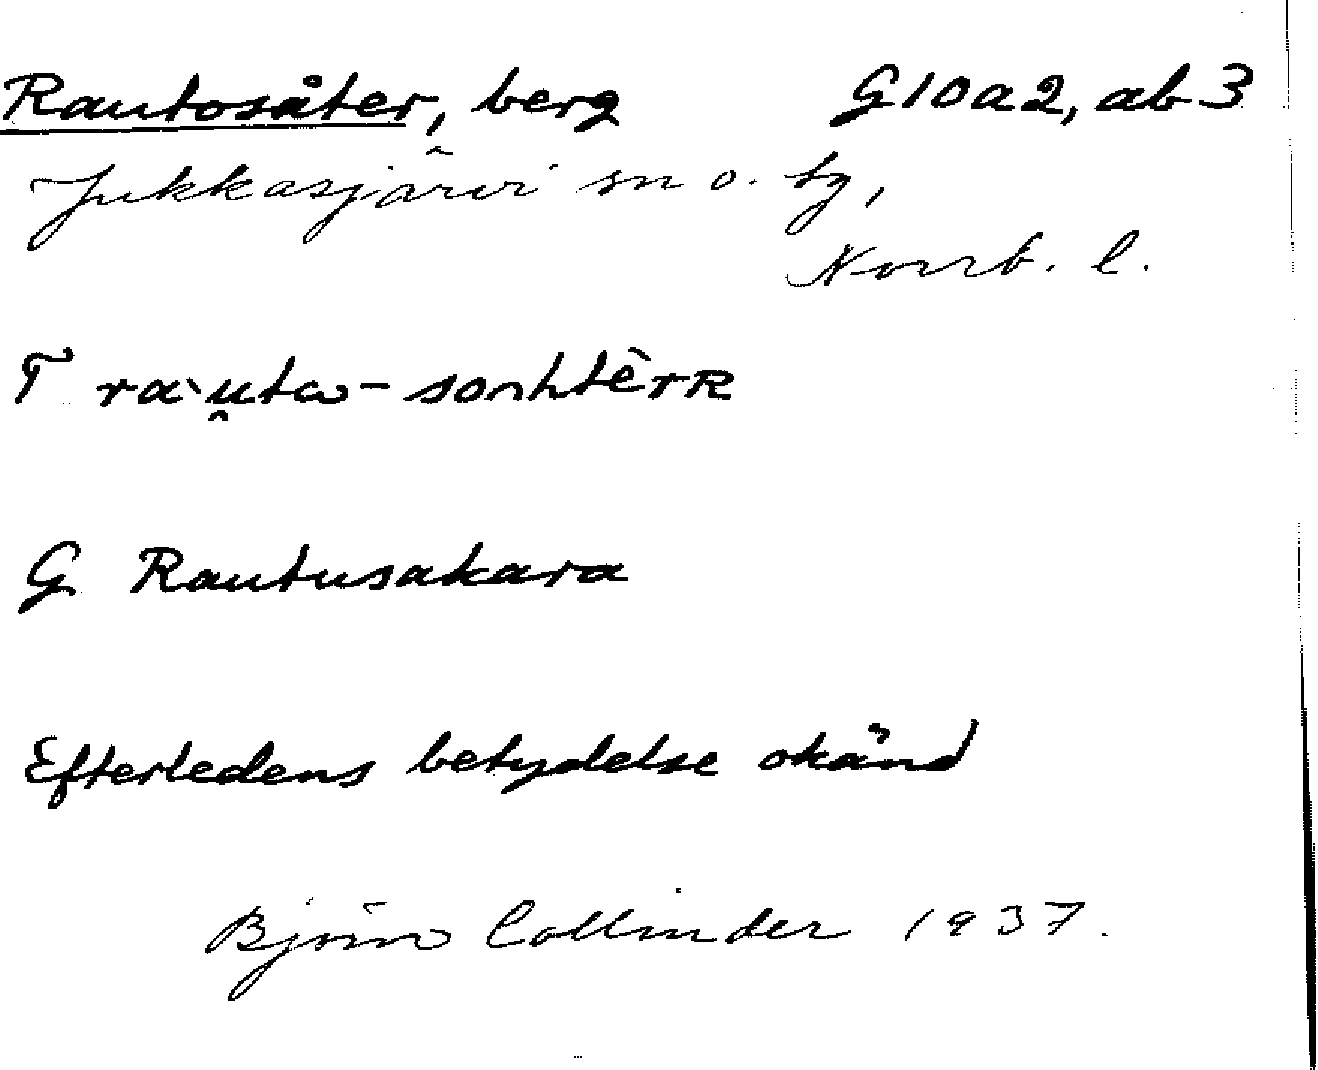 Rautosåter, berg G10a2, ab3
Jukkasjärvi sn o. tg,
Norrb. l.
T ra`u̯tω-soηhtèrR
G Rautusakara
Efterledens betydelse okänd
Björn Collinder 1937.